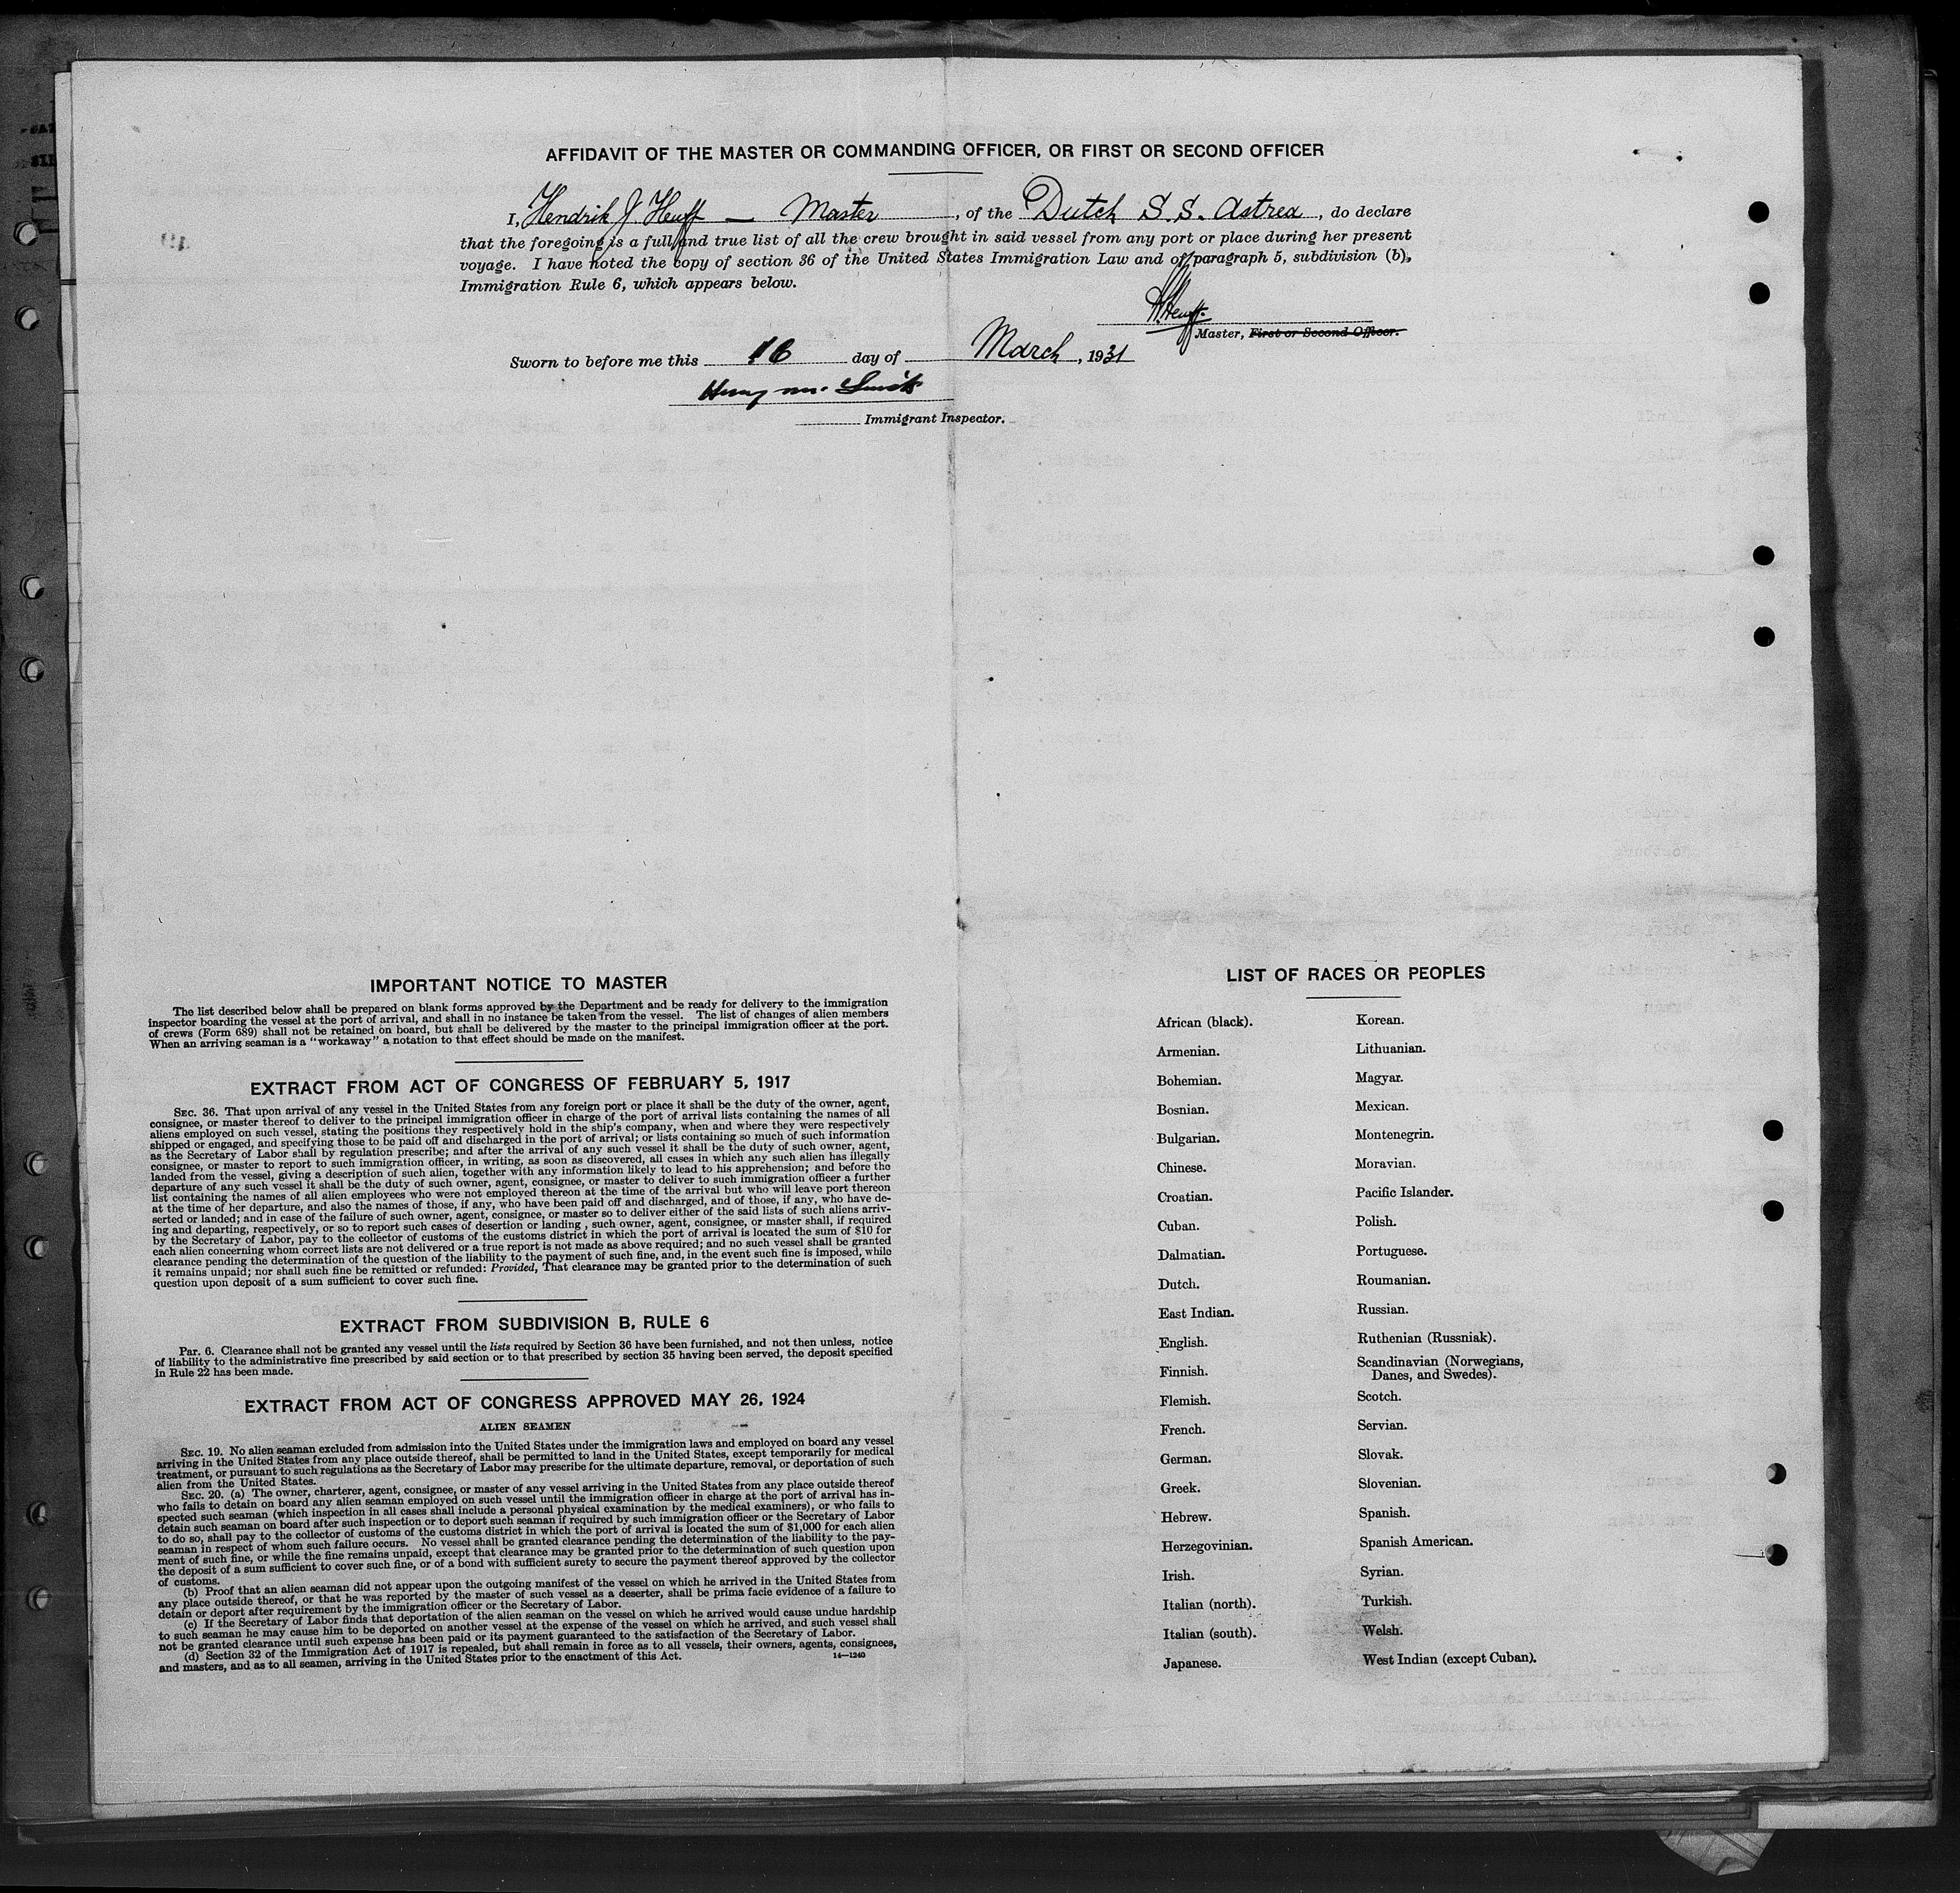 AFFIDAVIT OF THE MASTER OR COMMANDING OFFICER, OR FIRST OR SECOND OFFICER
I, Hendrik J Heuff — Master, of the Dutch S.S. Astrea, do declare
that the foregoing is a full and true list of all the crew brought in said vessel from any port or place during her present
voyage. I have noted the copy of section 36 of the United States Immigration Law and of paragraph 5, subdivision (b),
Immigration Rule 6, which appears below.
H. Heuff.
Master, First or Second Officer.
Sworn to before me this 16 day of March, 1931
Immigrant Inspector.
IMPORTANT NOTICE TO MASTER
The list described below shall be prepared on blank forms approved by the Department and be ready for delivery to the immigration
inspector boarding the vessel at the port of arrival, and shall in no instance be taken from the vessel. The list of changes of alien members
of crews (Form 689) shall not be retained on board, but shall be delivered by the master to the principal immigration officer at the port.
When an arriving seaman is a "workaway" a notation to that effect should be made on the manifest.
EXTRACT FROM ACT OF CONGRESS OF FEBRUARY 5, 1917
SEC. 36. That upon arrival of any vessel in the United States from any foreign port or place it shall be the duty of the owner, agent,
consignee, or master thereof to deliver to the principal immigration officer in charge of the port of arrival lists containing the names of all
aliens employed on such vessel, stating the positions they respectively hold in the ship's company, when and where they were respectively
shipped or engaged, and specifying those to be paid off and discharged in the port of arrival; or lists containing so much of such information
as the Secretary of Labor shall by regulation prescribe; and after the arrival of any such vessel it shall be the duty of such owner, agent,
consignee, or master to report to such immigration officer, in writing, as soon as discovered, all cases in which any such alien has illegally
landed from the vessel, giving a description of such alien, together with any information likely to lead to his apprehension; and before the
departure of any such vessel it shall be the duty of such owner, agent, consignee, or master to deliver to such immigration officer a further
list containing the names of all alien employees who were not employed thereon at the time of the arrival but who will leave port thereon
at the time of her departure, and also the names of those, if any, who have been paid off and discharged, and of those, if any, who have de-
serted or landed; and in case of the failure of such owner, agent, consignee, or master so to deliver either of the said lists of such aliens arriv-
ing and departing, respectively, or so to report such cases of desertion or landing , such owner, agent, consignee, or master shall, if required
by the Secretary of Labor, pay to the collector of customs of the customs district in which the port of arrival is located the sum of $10 for
each alien concerning whom correct lists are not delivered or a true report is not made as above required; and no such vessel shall be granted
clearance pending the determination of the question of the liability to the payment of such fine, and, in the event such fine is imposed, while
it remains unpaid; nor shall such fine be remitted or refunded: Provided, That clearance may be granted prior to the determination of such
question upon deposit of a sum sufficient to cover such fine.
EXTRACT FROM SUBDIVISION B, RULE 6
Par. 6. Clearance shall not be granted any vessel until the lists required by Section 36 have been furnished, and not then unless, notice
of liability to the administrative fine prescribed by said section or to that prescribed by section 35 having been served, the deposit specified
in Rule 22 has been made.
EXTRACT FROM ACT OF CONGRESS APPROVED MAY 26, 1924
ALIEN SEAMEN
SEC. 19. No alien seaman excluded from admission into the United States under the immigration laws and employed on board any vessel
arriving in the United States from any place outside thereof, shall be permitted to land in the United States, except temporarily for medical
treatment, or pursuant to such regulations as the Secretary of Labor may prescribe for the ultimate departure, removal, or deportation of such
alien from the United States.
SEC. 20. (a) The owner, charterer, agent, consignee, or master of any vessel arriving in the United States from any place outside thereof
who fails to detain on board any alien seaman employed on such vessel until the immigration officer in charge at the port of arrival has in-
spected such seaman (which inspection in all cases shall include a personal physical examination by the medical examiners), or who fails to
detain such seaman on board after such inspection or to deport such seaman if required by such immigration officer or the Secretary of Labor
to do so, shall pay to the collector of customs of the customs district in which the port of arrival is located the sum of $1,000 for each alien
seaman in respect of whom such failure occurs. No vessel shall be granted clearance pending the determination of the liability to the pay-
ment of such fine, or while the fine remains unpaid, except that clearance may be granted prior to the determination of such question upon
the deposit of a sum sufficient to cover such fine, or of a bond with sufficient surety to secure the payment thereof approved by the collector
of customs.
(b) Proof that an alien seaman did not appear upon the outgoing manifest of the vessel on which he arrived in the United States from
any place outside thereof, or that he was reported by the master of such vessel as a deserter, shall be prima facie evidence of a failure to
detain or deport after requirement by the immigration officer or the Secretary of Labor.
(c) If the Secretary of Labor finds that deportation of the alien seaman on the vessel on which he arrived would cause undue hardship
to such seaman he may cause him to be deported on another vessel at the expense of the vessel on which he arrived, and such vessel shall
not be granted clearance until such expense has been paid or its payment guaranteed to the satisfaction of the Secretary of Labor.
(d) Section 32 of the Immigration Act of 1917 is repealed, but shall remain in force as to all vessels, their owners, agents, consignees,
and masters, and as to all seamen, arriving in the United States prior to the enactment of this Act.
14—1240
LIST OF RACES OR PEOPLES
African (black).
Armenian.
Bohemian.
Bosnian.
Bulgarian.
Chinese.
Croatian.
Cuban.
Dalmatian.
Dutch.
East Indian.
English.
Finnish.
Flemish.
French.
German.
Greek.
Hebrew.
Herzegovinian.
Irish.
Italian (north).
Italian (south).
Japanese.
Korean.
Lithuanian.
Magyar.
Mexican.
Montenegrin.
Moravian.
Pacific Islander.
Polish.
Portuguese.
Roumanian.
Russian.
Ruthenian (Russniak).
Scandinavian (Norwegians,
Danes, and Swedes).
Scotch.
Servian.
Slovak.
Slovenian.
Spanish.
Spanish American.
Syrian.
Turkish.
Welsh.
West Indian (except Cuban).